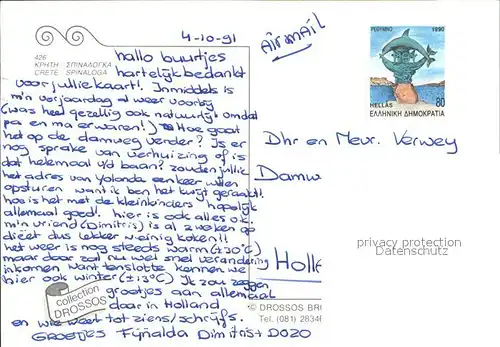 4-10-91
AIRMAIL
426
ΚΡΗΤΗ ΣΠΙΝΑΛΟΓΚΑ
CRETE SPINALOGA
hallo buurtjes
hartelijk bedankt
voor jullie kaart! Inmiddels is
m'n verjaardag al weer voorby
(was heel gezellig ook natuurlyk omdat
pa en ma er waren!) Hoe gaat
het op de damweg verder? Is er
nog sprake van verhuizing of is
dat helemaal v/d baan? zouden jullie
het adres van Yolanda een keer willen
opsturen want ik ben het kwijt geraakt!
hoe is het met de kleinkinders hopelijk
allemaal goed! hier is ook alles o.k.
m'n vriend (Dimitris) is al 2 weken op
dieët dus lekker weinig koken!!
het weer is nog steeds warm (±30°C)
maar daar zal nu wel snel verandering
inkomen want tenslotte kennen we
hier ook winter (±13°C) Ik zou zeggen
groetjes aan allemaal
daar in Holland
en wie weet tot ziens/schrijfs.
GROETJES Fijnalda Dimitris + DOZO
collection
DROSSOS
ΡΕΘΥΜΝΟ 1990
HELLAS 80
ΕΛΛΗΝΙΚΗ ΔΗΜΟΚΡΑΤΙΑ
Dhr en Mevr. Verwey
Damw
privacy protection
Datenschutz
Holle
© DROSSOS BR
Tel. (081) 28346